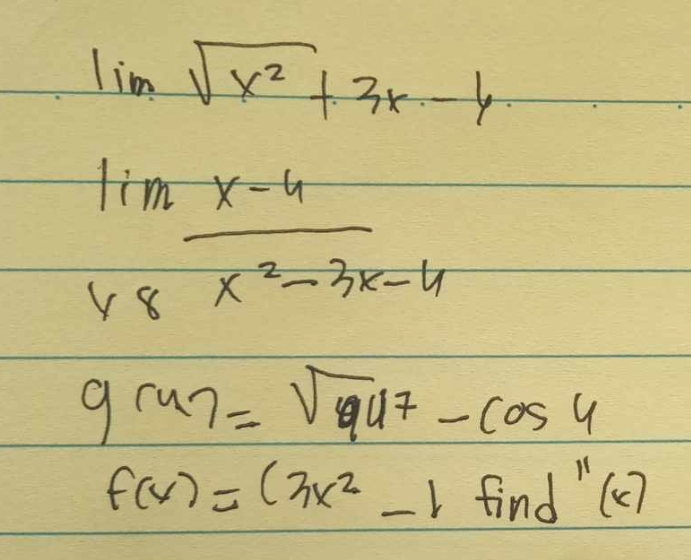 lim √x² + 3x - 4
lim x-4
x²-3x-4
x 8
g(u)= √u7 - cos u
f(x) = (3x² -1 find "(x)